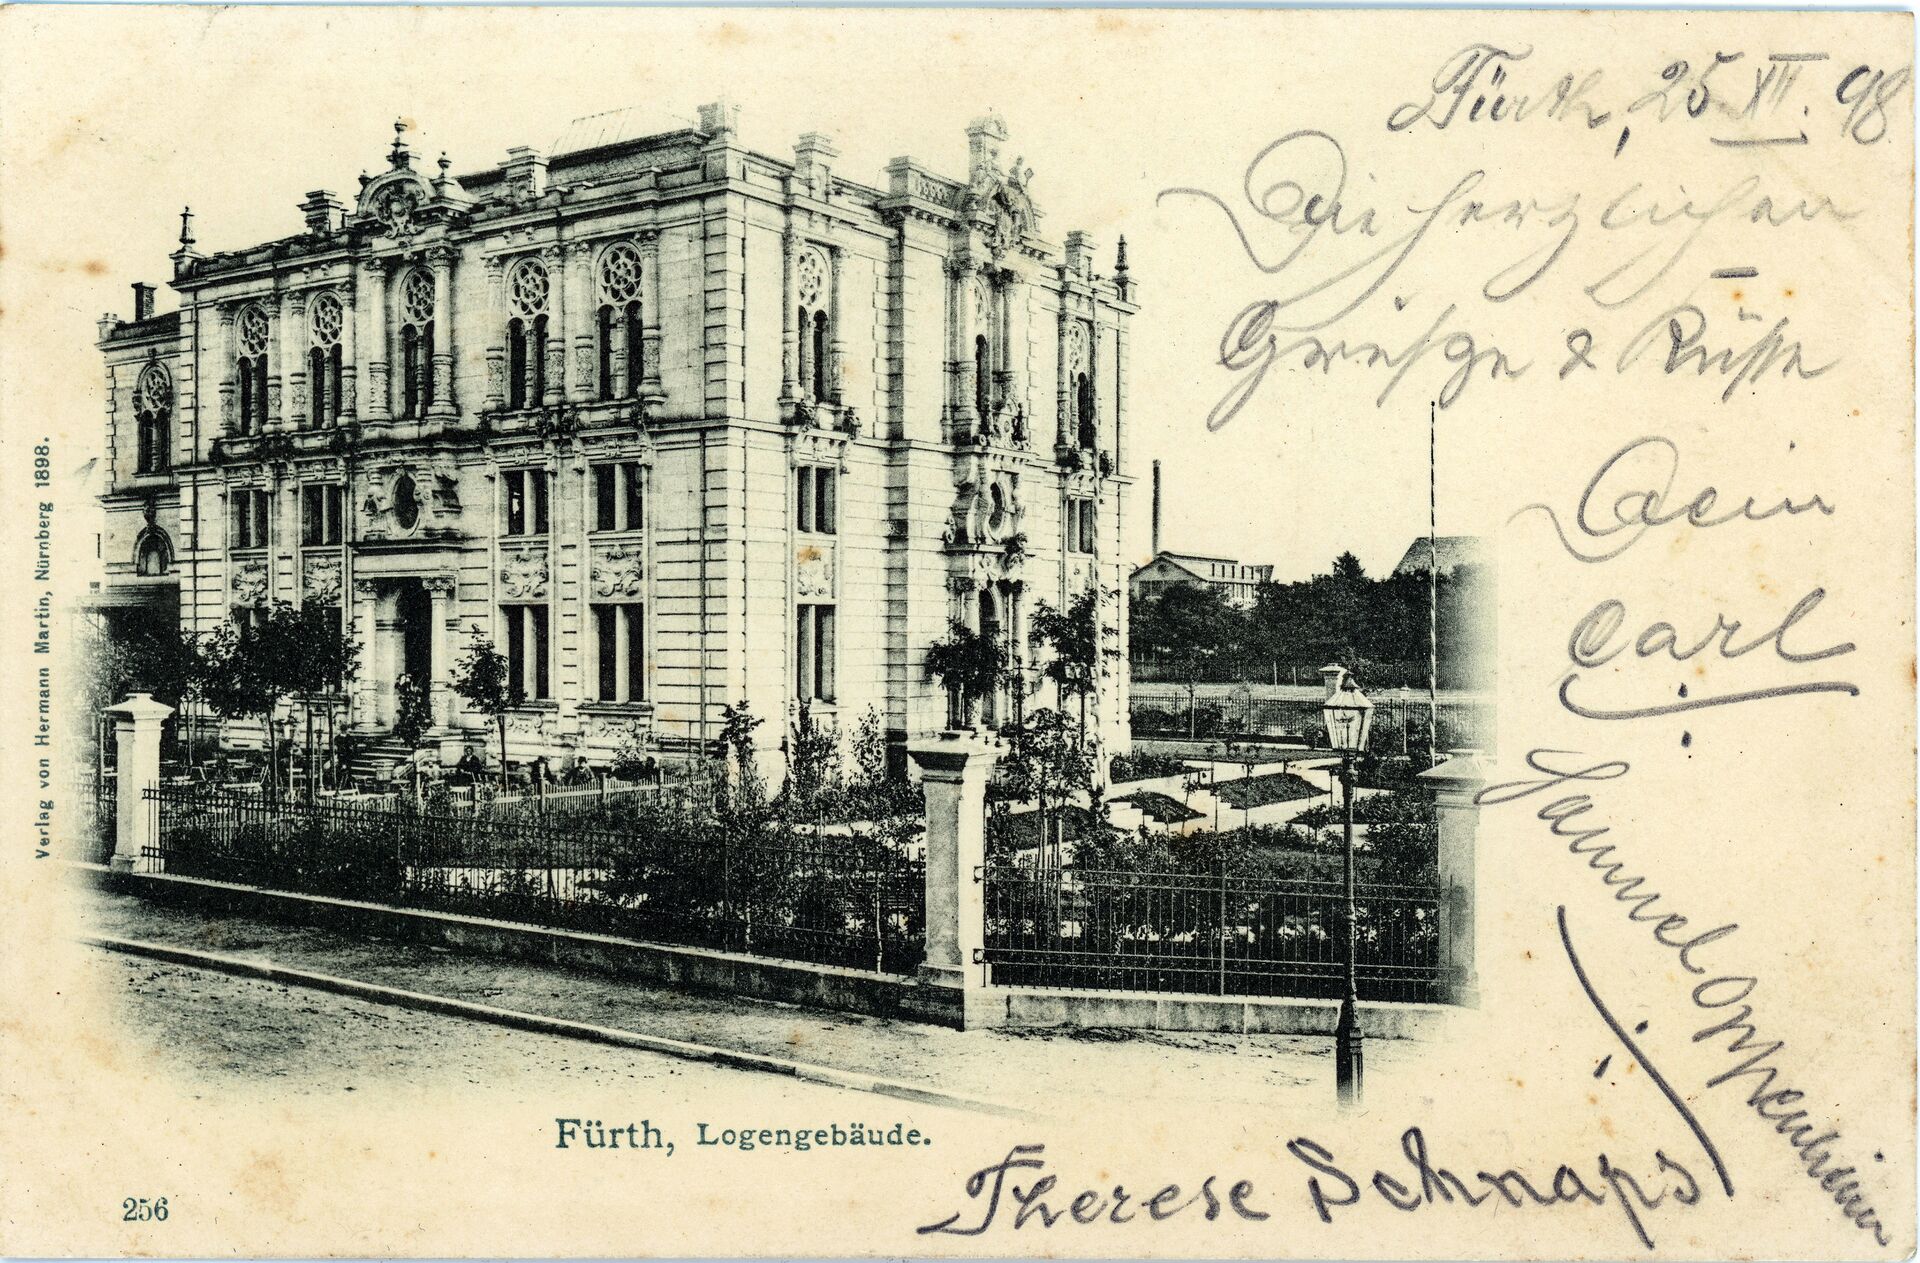 Fürth, 25. XII. 98
Die herzlichen
Grüße & Küsse
Dein
Carl
Hammel Oppenheimer
Therese Schnaps
Verlag von Hermann Martin, Nürnberg 1898.
Fürth, Logengebäude.
256